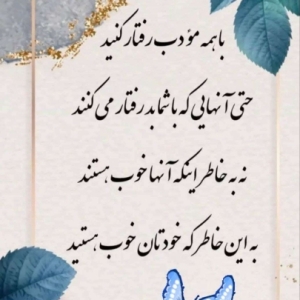 با همه مؤدب رفتار کنید
حتی آنهایی که با شما بد رفتار می کنند
نه به خاطر اینکه آنها خوب هستند
به این خاطر که خودتان خوب هستید